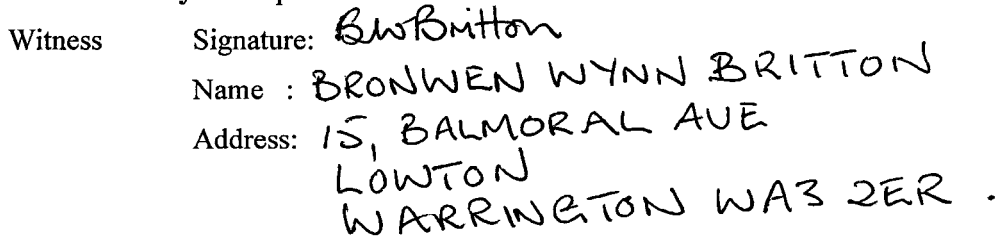 Witness Signature: BWBritton
Name : BRONWEN WYNN BRITTON
Address: 15, BALMORAL AVE
LOWTON
WARRINGTON WA3 2ER .